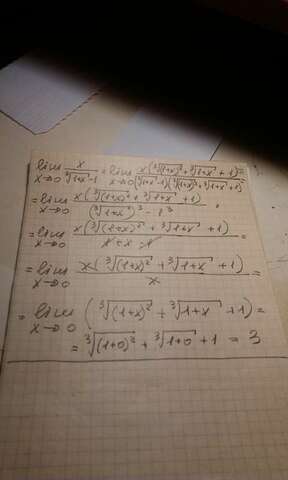 lim x→0 x / (∛(1+x) - 1) = lim x→0 x(∛(1+x)² + ∛(1+x) + 1) / (∛(1+x) - 1)(∛(1+x)² + ∛(1+x) + 1) =
= lim x→0 x(∛(1+x)² + ∛(1+x) + 1) / (∛(1+x))³ - 1³ =
= lim x→0 x(∛(1+x)² + ∛(1+x) + 1) / 1 + x - 1 =
= lim x→0 x(∛(1+x)² + ∛(1+x) + 1) / x =
= lim x→0 (∛(1+x)² + ∛(1+x) + 1) =
= ∛(1+0)² + ∛(1+0) + 1 = 3